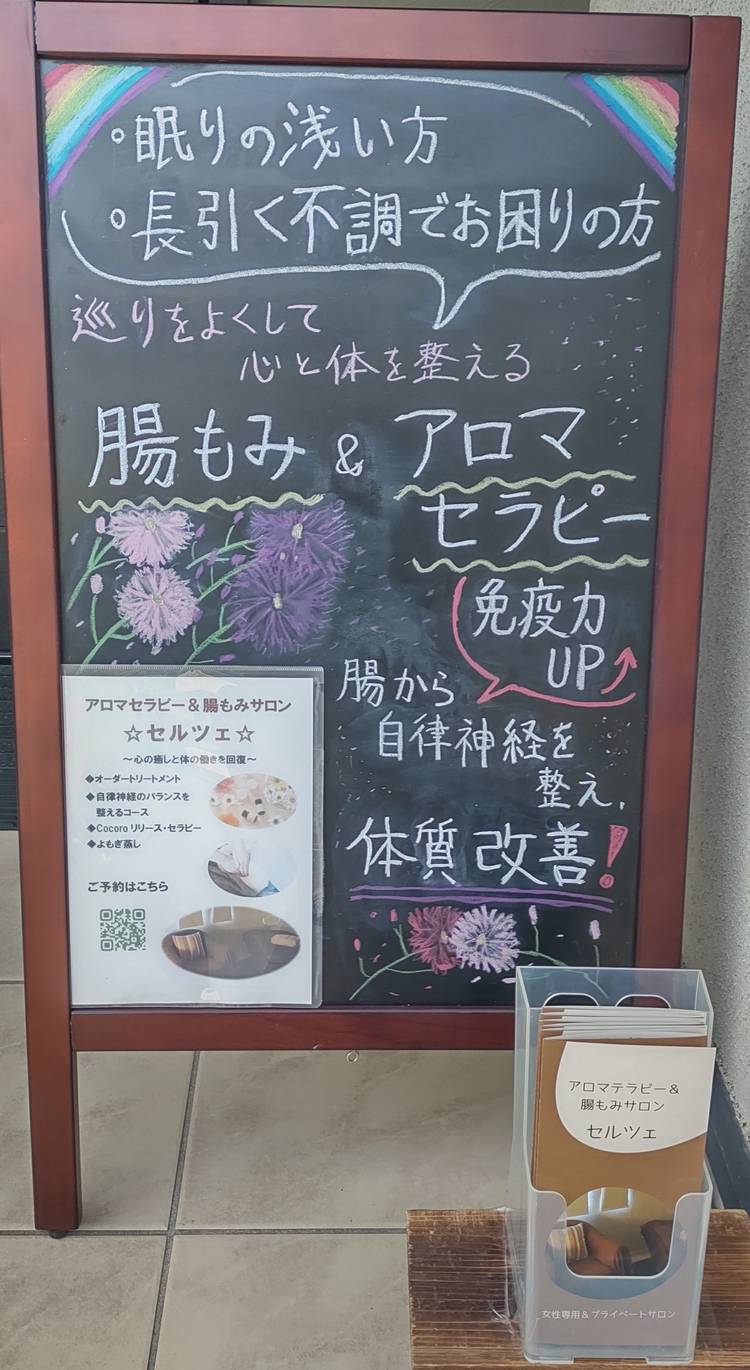 ◦眠りの浅い方
◦長引く不調でお困りの方
巡りをよくして
心と体を整える
腸もみ & アロマ
セラピー
免疫力
UP
腸から
自律神経を
整え、
体質改善!
アロマセラピー&腸もみサロン
☆セルツェ☆
〜心の癒しと体の働きを回復〜
◆オーダートリートメント
◆自律神経のバランスを
整えるコース
◆Cocoro リリース・セラピー
◆よもぎ蒸し
ご予約はこちら
アロマテラピー&
腸もみサロン
セルツェ
女性専用&プライベートサロン